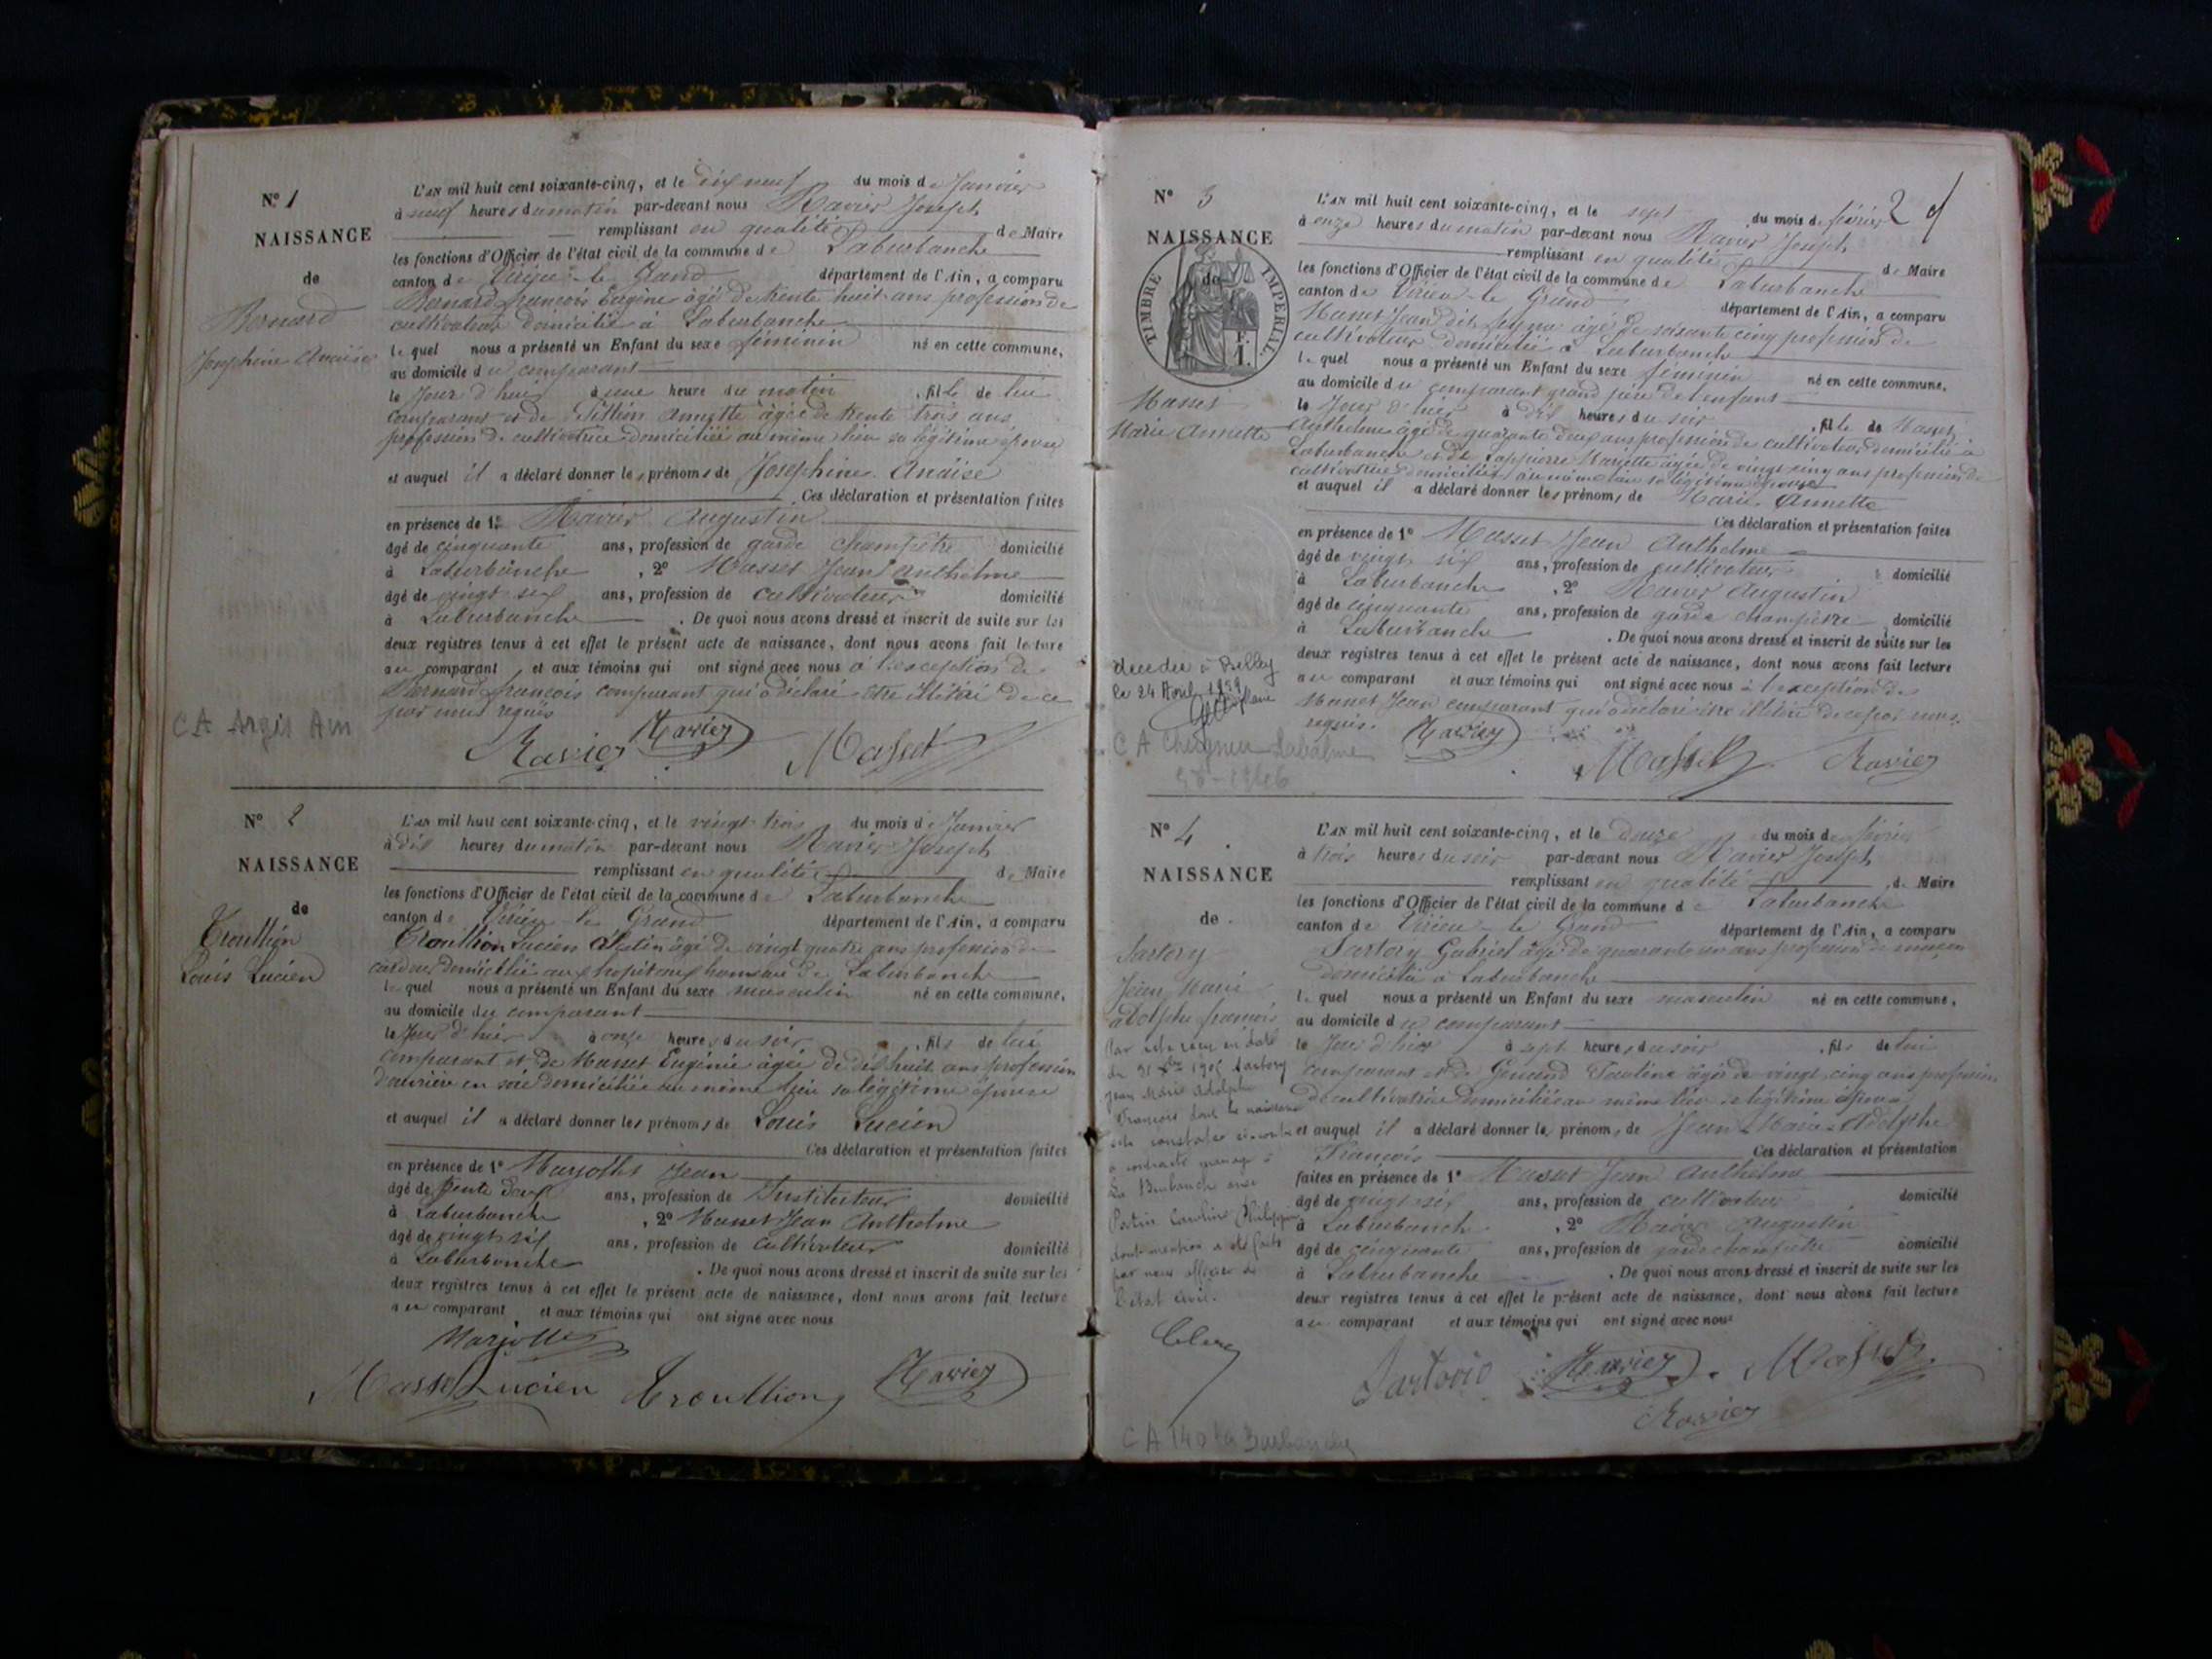 N° 1
NAISSANCE
de
Bernard
Josephine Anaïse
C A Argis Ain
L'AN mil huit cent soixante-cinq, et le dix neuf du mois de Janvier
à neuf heures du matin par-devant nous Ravier Joseph
remplissant en qualité de Maire
les fonctions d'Officier de l'état civil de la commune de Laburbanche
canton de Virieu-le Grand département de l'Ain, a comparu
Bernard françois Eugène âgé de trente huit ans profession de
cultivateur domicilié à Laburbanche
lequel nous a présenté un Enfant du sexe féminin né en cette commune,
au domicile du comparant
le Jour d'hui à une heure du matin , fille de lui
comparant et de âgée de trente trois ans
profession de cultivatrice domiciliée au même lieu sa légitime épouse
et auquel il a déclaré donner les prénoms de Joséphine Anaïse
Ces déclaration et présentation faites
en présence de 1° Ravier Augustin
âgé de cinquante ans, profession de garde champêtre domicilié
à Laburbanche , 2° Masset Jean Anthelme
âgé de vingt six ans, profession de cultivateur domicilié
à Laburbanche . De quoi nous avons dressé et inscrit de suite sur les
deux registres tenus à cet effet le présent acte de naissance, dont nous avons fait lecture
au comparant , et aux témoins qui ont signé avec nous à l'exception de
Bernard françois comparant qui a déclaré être illétéré de ce
par nous requis
Ravier Ravier Masset
N° 2
NAISSANCE
de
Troullion
Louis Lucien
L'AN mil huit cent soixante-cinq, et le vingt trois du mois de Janvier
à dix heures du matin par-devant nous Ravier Joseph
remplissant en qualité de Maire
les fonctions d'Officier de l'état civil de la commune de Laburbanche
canton de Virieu-le Grand département de l'Ain, a comparu
Troullion Lucien âgé de vingt quatre ans profession de
domicilié aux hopitaux hameau de Laburbanche
lequel nous a présenté un Enfant du sexe masculin né en cette commune,
au domicile du comparant
le Jour d'hier à onze heures du soir , fils de lui
comparant et de Masset Eugénie âgée de dix huit ans profession
d'ouvrière en soie domiciliée au même lieu sa légitime épouse
et auquel il a déclaré donner les prénoms de Louis Lucien
Ces déclaration et présentation faites
en présence de 1° Jean
âgé de trente deux ans, profession de Instituteur domicilié
à Laburbanche , 2° Masset Jean Anthelme
âgé de vingt six ans, profession de cultivateur domicilié
à Laburbanche . De quoi nous avons dressé et inscrit de suite sur les
deux registres tenus à cet effet le présent acte de naissance, dont nous avons fait lecture
au comparant et aux témoins qui ont signé avec nous
Masset Lucien Troullion Ravier
2
N° 3
NAISSANCE
de
TIMBRE IMPERIAL
F.
1.
Masset
Marie Annette
décédée à Belley
le 24 Août
C A
L'AN mil huit cent soixante-cinq, et le sept du mois de février
à onze heures du matin par-devant nous Ravier Joseph
remplissant en qualité de Maire
les fonctions d'Officier de l'état civil de la commune de Laburbanche
canton de Virieu-le Grand département de l'Ain, a comparu
Masset Jean dit âgé de soixante cinq profession de
cultivateur domicilié à Laburbanche
lequel nous a présenté un Enfant du sexe féminin né en cette commune,
au domicile du comparant grand père de l'enfant
le Jour d'hier à dix heures du soir , fille de Masset
Anthelme âgé de quarante deux ans profession de cultivateur domicilié à
Laburbanche et de Lappierre Mariette âgée de vingt cinq ans profession de
cultivatrice domiciliée au même lieu sa légitime épouse
et auquel il a déclaré donner les prénoms de Marie Annette
Ces déclaration et présentation faites
en présence de 1° Masset Jean Anthelme
âgé de vingt six ans, profession de cultivateur domicilié
à Laburbanche , 2° Ravier Augustin
âgé de cinquante ans, profession de garde champêtre domicilié
à Laburbanche . De quoi nous avons dressé et inscrit de suite sur les
deux registres tenus à cet effet le présent acte de naissance, dont nous avons fait lecture
au comparant et aux témoins qui ont signé avec nous à l'exception de
Masset Jean comparant qui a déclaré être illétéré de ce par nous
requis. Ravier
Masset Ravier
N° 4
NAISSANCE
de
Sartory
Jean Marie
Adolphe françois
Sartory
Jean Marie Adolphe
François dont la naissance
est constatée ci-contre
a contracté mariage à
La Burbanche avec
Caroline
dont mention a été faite
par nous officier de
l'état civil.
C A 140 La Burbanche
L'AN mil huit cent soixante-cinq, et le douze du mois de février
à trois heures du soir par-devant nous Ravier Joseph
remplissant en qualité de Maire
les fonctions d'Officier de l'état civil de la commune de Laburbanche
canton de Virieu-le Grand département de l'Ain, a comparu
Sartory Gabriel âgé de quarante un ans profession de maçon
domicilié à Laburbanche
lequel nous a présenté un Enfant du sexe masculin né en cette commune,
au domicile du comparant
le Jour d'hier à sept heures du soir , fils de lui
comparant et de âgée de vingt cinq ans profession
de cultivatrice domiciliée au même lieu sa légitime épouse
et auquel il a déclaré donner les prénoms de Jean Marie Adolphe
François Ces déclaration et présentation
faites en présence de 1° Masset Jean Anthelme
âgé de vingt six ans, profession de cultivateur domicilié
à Laburbanche , 2° Ravier Augustin
âgé de cinquante ans, profession de garde champêtre domicilié
à Laburbanche . De quoi nous avons dressé et inscrit de suite sur les
deux registres tenus à cet effet le présent acte de naissance, dont nous avons fait lecture
au comparant et aux témoins qui ont signé avec nous
Sartorio Ravier Masset
Ravier